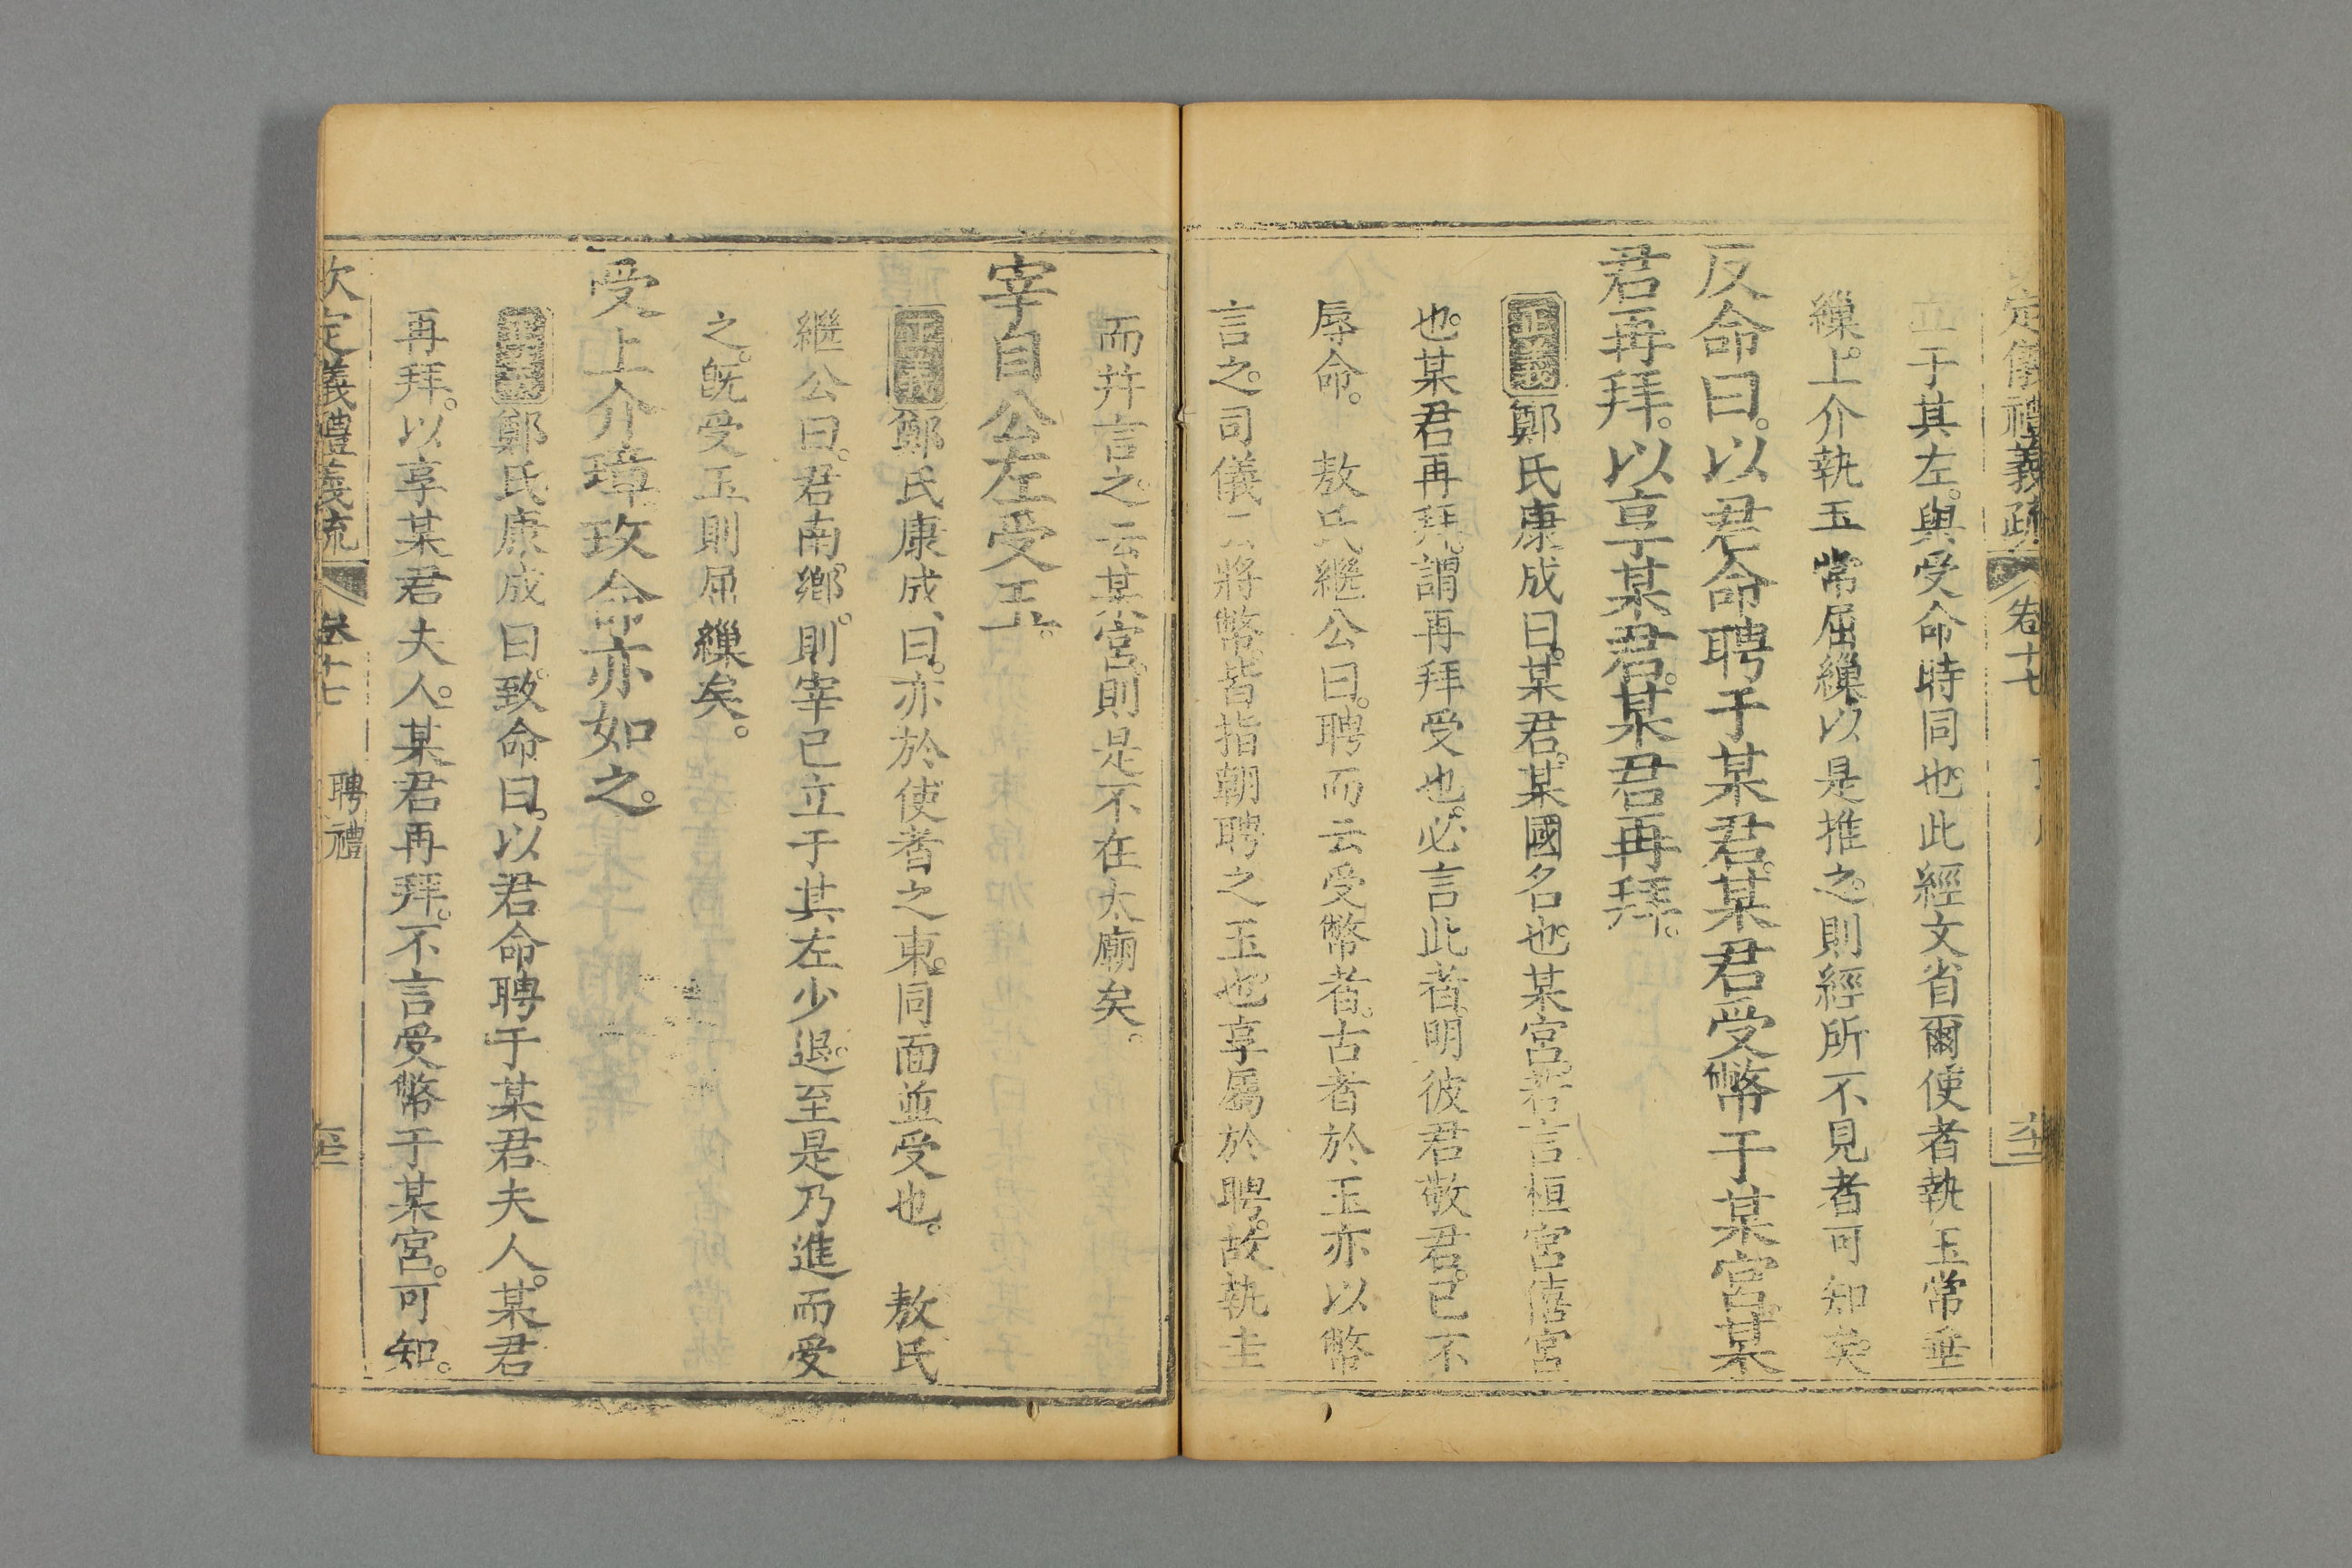 定儀禮義疏 卷十七
立于其左。與受命時同也。此經文省爾。使者執玉常垂
繅。上介執玉常屈繅。以是推之。則經所不見者可知矣
反命曰。以君命聘于某君。某君受幣于某宮。某
君再拜。以享某君。某君再拜。
正義鄭氏康成曰。某君。某國名也。某宮。若言桓宮僖宮
也。某君再拜。謂再拜受也。必言此者。明彼君敬君。已不
辱命。 敖氏繼公曰。聘而云受幣者。古者於玉亦以幣
言之。司儀云將幣。皆指朝聘之玉也。享屬於聘。故執圭
而幷言之。云某宮。則是不在太廟矣。
宰自公左受玉。
正義鄭氏康成曰。亦於使者之東。同面並受也。 敖氏
繼公曰。君南鄉。則宰已立于其左少退。至是乃進而受
之。旣受玉則屈繅矣。
受上介璋致命亦如之。
正義鄭氏康成曰。致命曰。以君命聘于某君夫人。某君
再拜。以享某君夫人。某君再拜。不言受幣于某宮。可知。
欽定義禮義疏 卷十七 聘禮